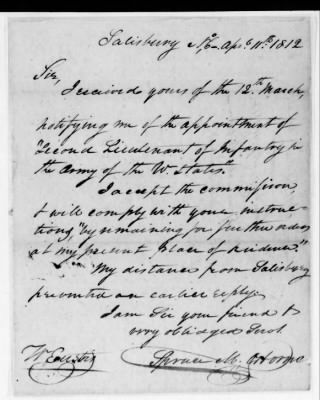 Salisbury N.C. Apl. 11th 1812
Sir,
I received yours of the 12th March,
notifying me of the appointment of
"Second Lieutenant of Infantry in
the Army of the U. States".
I accept the commission
& will comply with your instruc-
tions, "by remaining for further orders
at my present place of residence."
My distance from Salisbury
prevented an earlier reply.
I am Sir your friend &
very obliged Servt.
Wm Eustis
Spruce M.